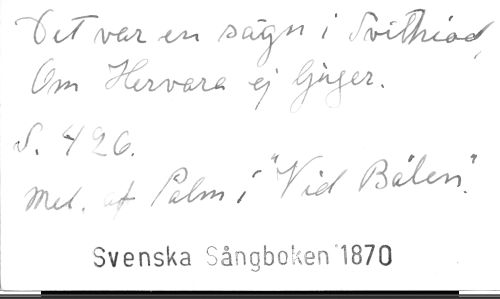 Det var en sägn i Svithiod,
Om Hervara ej ljuger.
S. 426.
Mel. af Palm i "Vid Bålen".
Svenska Sångboken 1870